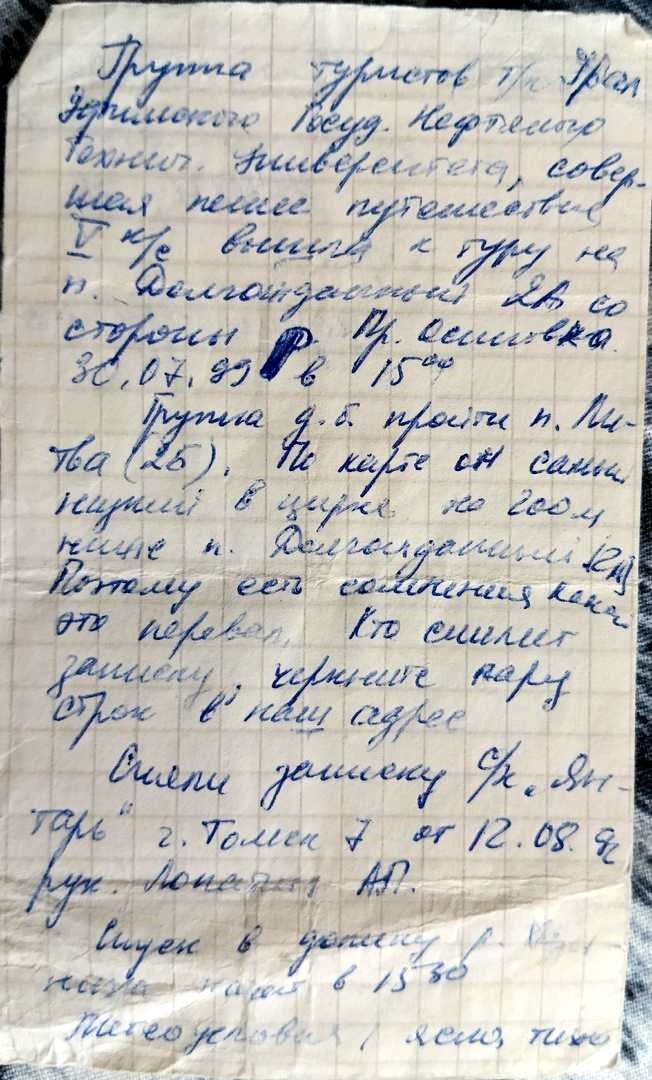 Группа туристов т/к "Урал
Уфимского Госуд. Нефтяного
Технич. Университета, совер-
шая пешее путешествие
V к/с вышла к туру на
п. Долгожданный 2А со
стороны Пр. Осиповка.
30.07.99 в 15⁰⁰
Группа д.б. пройти п. Ли-
тва (2Б). По карте он самый
нижний в цирке на 200 м
ниже п. Долгожданный
Поэтому есть сомнения какой
это перевал. Кто снимет
записку, черкните пару
строк в наш адрес
Сняли записку с/к "Ян-
тарь" г. Томск 7 от 12.08.
рук. Лопатин А.П.
Спуск в долину р.
начат в 15 30
Метеоусловия / ясно, тихо